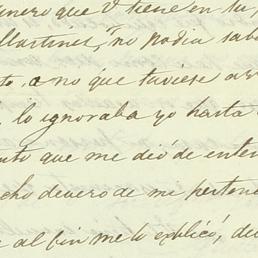 dinero que V tiene en tu p
Martinez, no podia sab
to, a no que tuviese av
, lo ignoraba yo hasta
nto que me dió de enten
cho denero de mi perten
e al fin me lo esplicó, de